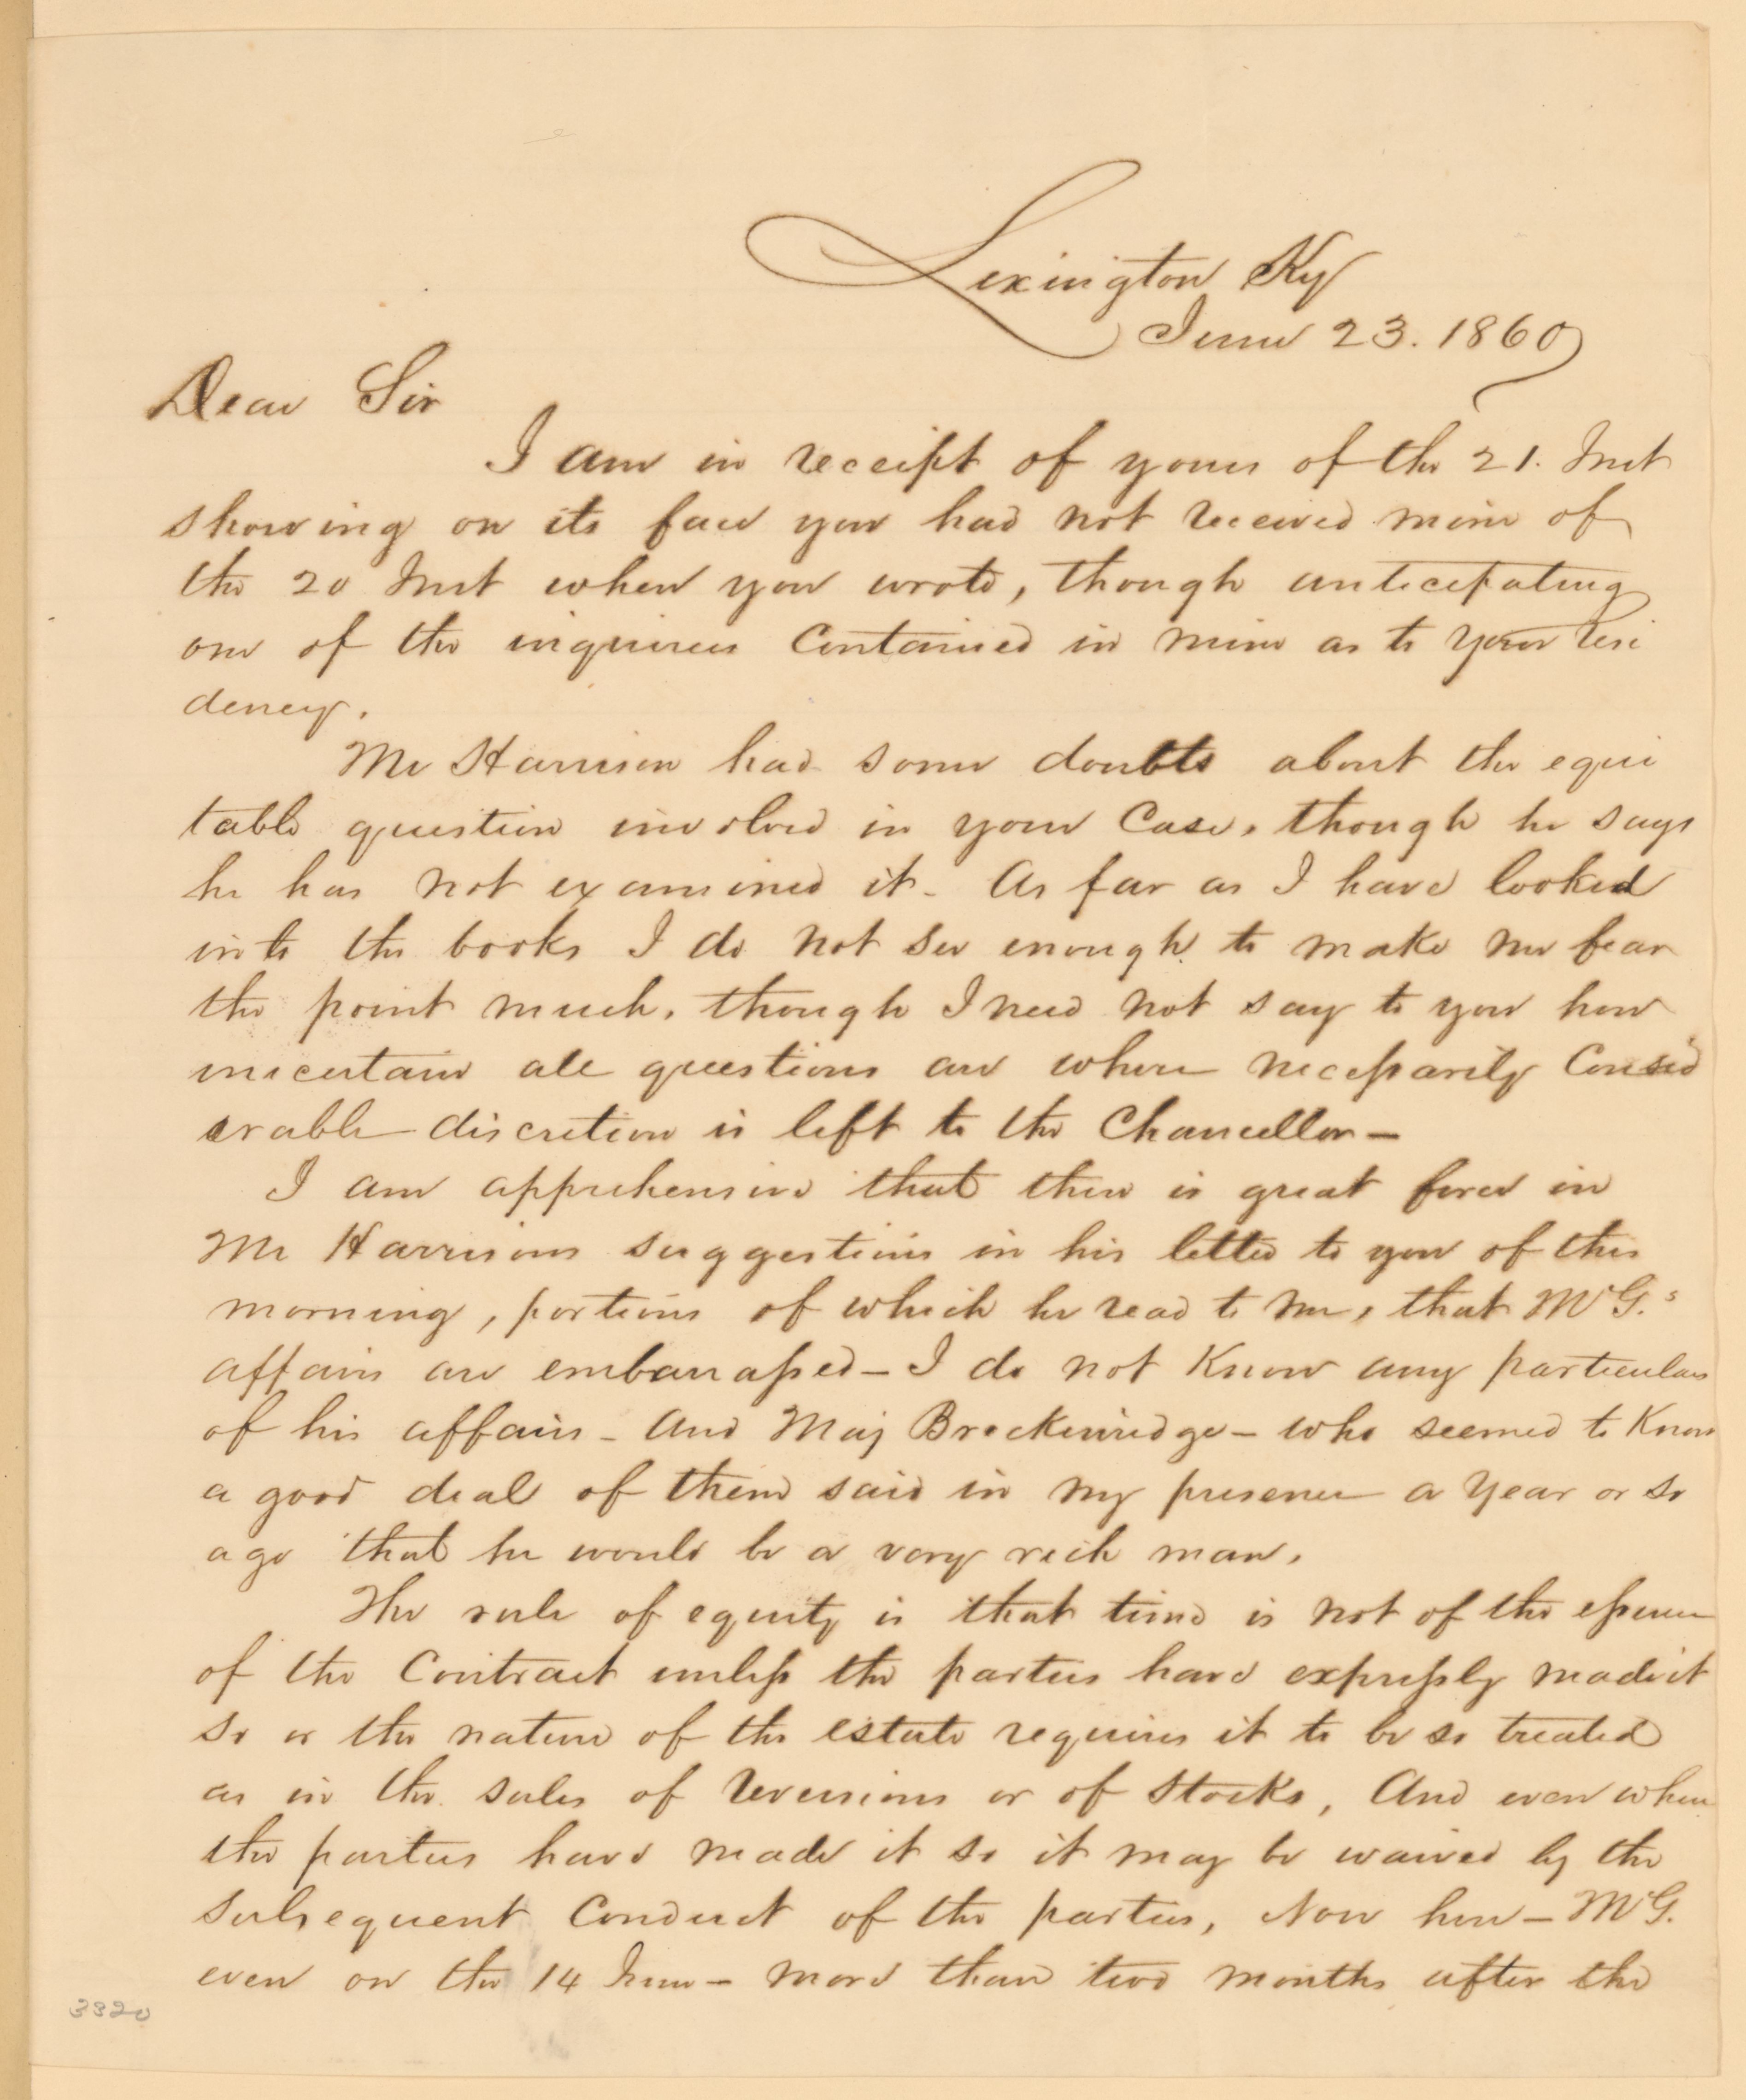 Lexington Ky
June 23. 1860
Dear Sir
I am in receipt of yours of the 21. Inst
showing on its face you had not received mine of
the 20 Inst when you wrote, though anticipating
one of the inquiries Contained in mine as to your resi
dency.
Mr Harrison had some doubts about the equi
table question involved in your Case, though he says
he has not examined it - As far as I have looked
into the books I do not see enough to make me fear
the point much, though I need not say to you how
uncertain all questions are where necessarily Consid
erable discretion is left to the Chancellor -
I am apprehensive that there is great force in
Mr Harrisons suggestions in his letter to you of this
morning, portions of which he read to me, that McG.s
affairs are embarrassed - I do not Know any particulars
of his affairs - And Maj Breckinridge - who seemed to Know
a good deal of them said in my presence a Year or so
ago that he would be a very rich man.
The rule of equity is that time is not of the essence
of the Contract unless the parties have expressly made it
so or the nature of the estate requires it to be so treated
as in the sales of reversions or of Stocks, And even when
the parties have made it so it may be waived by the
subsequent Conduct of the parties, Now here - McG.
even on the 14 June - more than two months after the
3320